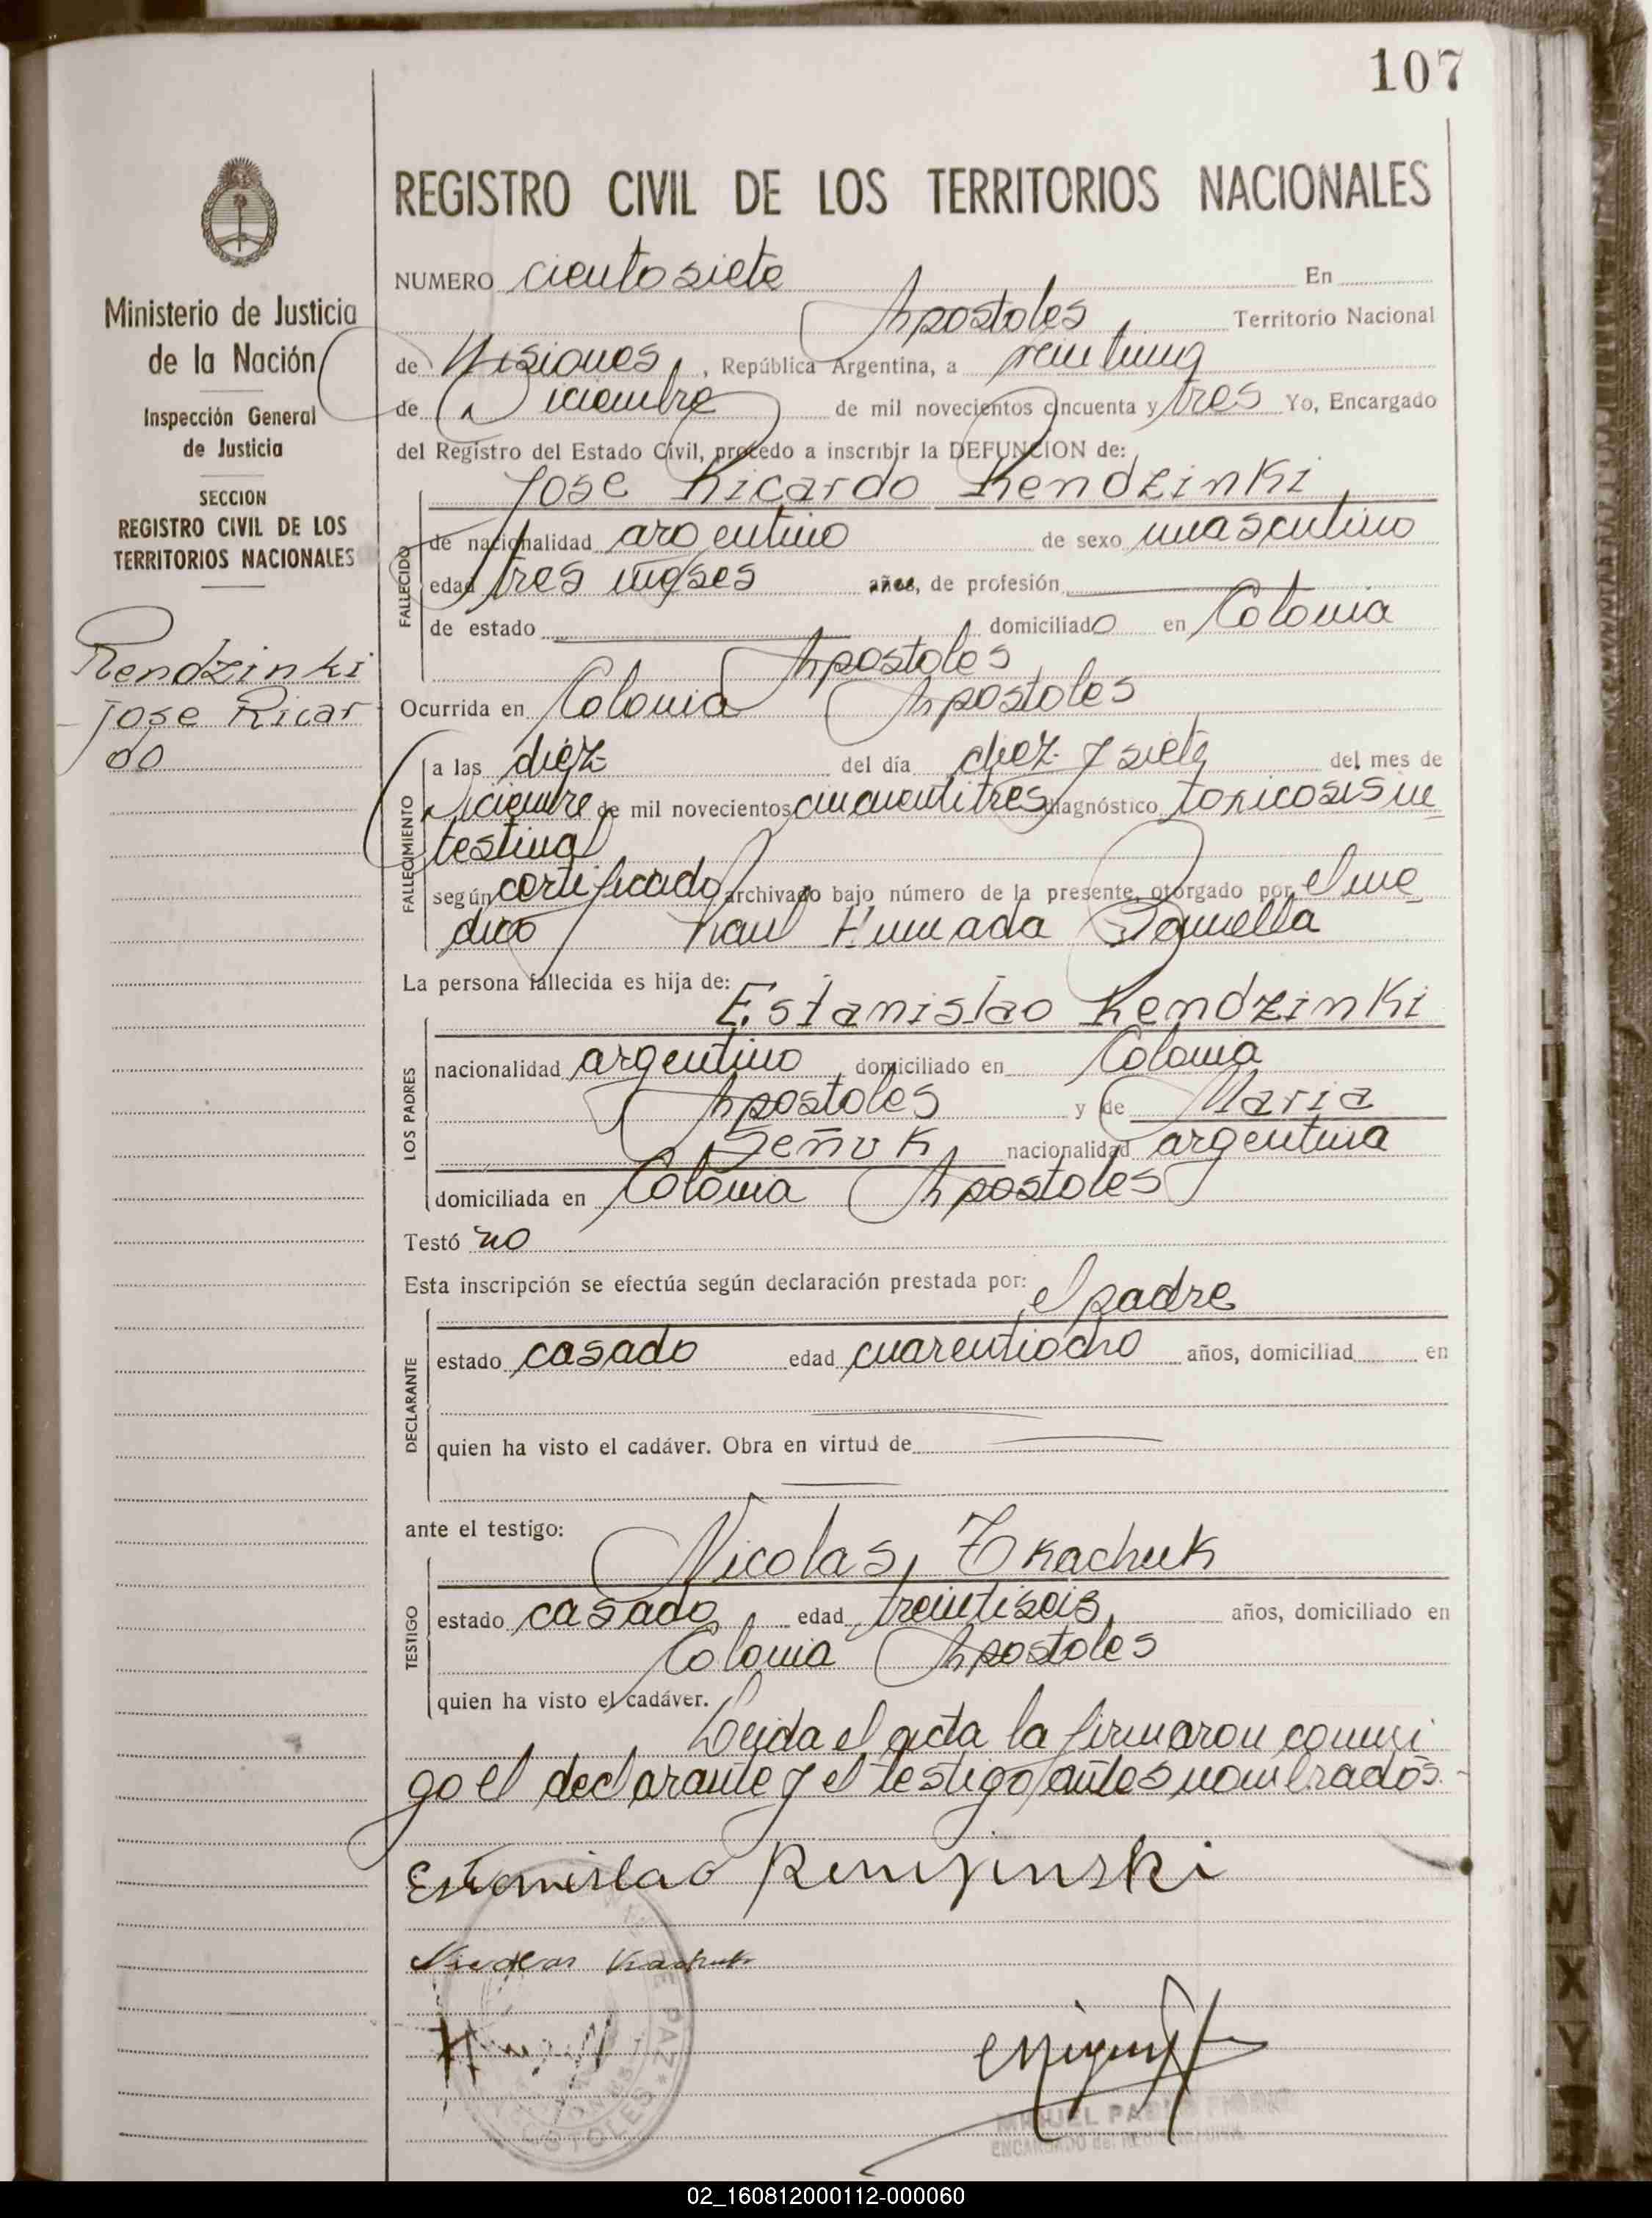 107
REGISTRO CIVIL DE LOS TERRITORIOS NACIONALES
Ministerio de Justicia
de la Nación
Inspección General
de Justicia
SECCION
REGISTRO CIVIL DE LOS
TERRITORIOS NACIONALES
Rendzinki
Jose Ricar
do
NUMERO ciento siete En
Apostoles Territorio Nacional
de Misiones, República Argentina, a veintiuno
de Diciembre de mil novecientos cincuenta y tres Yo, Encargado
del Registro del Estado Civil, procedo a inscribir la DEFUNCION de:
Jose Ricardo Rendzinki
FALLECIDO
de nacionalidad argentino de sexo masculino
edad tres meses años, de profesión
de estado domiciliado en Colonia
Apostoles
Ocurrida en Colonia Apostoles
FALLECIMIENTO
a las diez del día diez y siete del mes de
Diciembre de mil novecientos cincuentitres diagnóstico toxicosis in
testinal
según certificado archivado bajo número de la presente, otorgado por el me
dico Raul Humada
La persona fallecida es hija de:
LOS PADRES
Estanislao Rendzinki
nacionalidad argentino domiciliado en Colonia
Apostoles y de Maria
Señuk nacionalidad argentina
domiciliada en Colonia Apostoles
Testó no
Esta inscripción se efectúa según declaración prestada por:
el padre
DECLARANTE
estado casado edad cuarentiocho años, domiciliad en
quien ha visto el cadáver. Obra en virtud de
ante el testigo:
Nicolas Tkachuk
TESTIGO
estado casado edad treintiseis años, domiciliado en
Colonia Apostoles
quien ha visto el cadáver.
Leida el acta la firmaron conmi
go el declarante y el testigo antes nombrados.-
Estanislao
DE PAZ
02_160812000112-000060